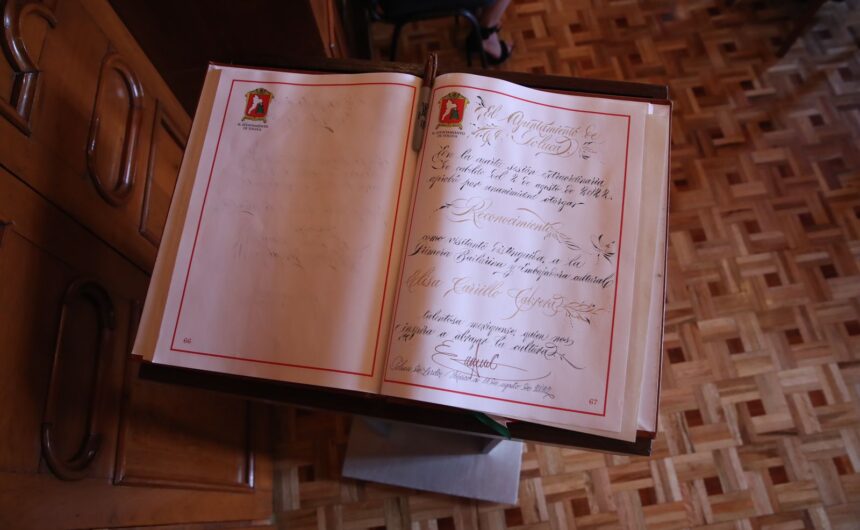 EL AYUNTAMIENTO
DE TOLUCA
66
EL AYUNTAMIENTO
DE TOLUCA
El Ayuntamiento de
Toluca
En la cuarta sesión extraordinaria
De cabildo del 4 de agosto de 2022
aprobó por unanimidad otorgar
Reconocimiento
como visitante Distinguida, a la
Primera Bailarina y Embajadora cultural
Elisa Carrillo Cabrera
talentosa mexiquense, quien nos
inspira a abrazar la cultura
Toluca de Lerdo, México
agosto de 2022
67